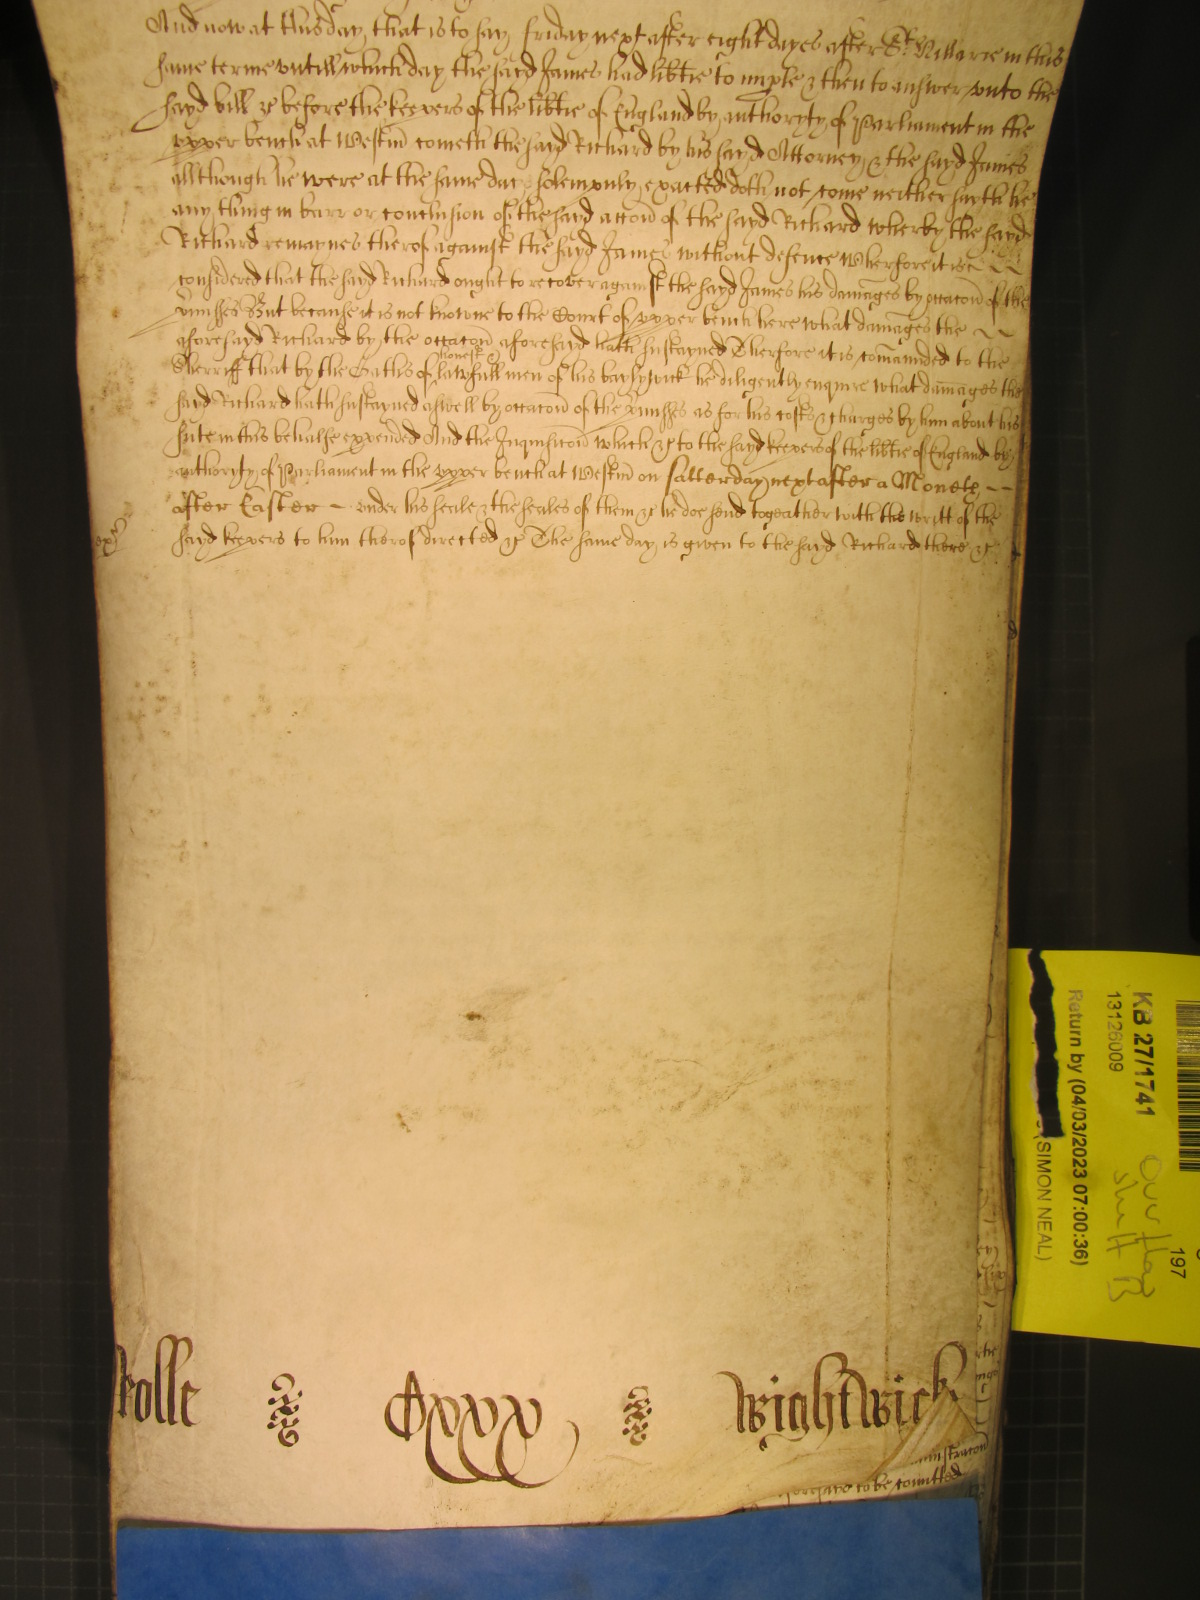 And now at this day, that is to say, friday next after eight dayes after St. Hillarie in this
same terme untill which day the sayd James had libtie to imple & then to answer unto the
sayd bill &c before the keepers of the libtie of England by authoryty of Parliament in the
upper bench at Westm cometh the sayd Richard by his sayd Attorney, & the sayd James
allthough he were at the same day solempnly exacted doth not come neither sayth he
any thing in barr or conclusion of the sayd accon of the sayd Richard wherby the sayd
Richard remaynes therof against the sayd James without defence Wherfore it is
considered that the sayd Richard ought to recover against the sayd James his damages by occacon of the
pmisses But because it is not knowne to the Court of upper bench here what damages the
aforesayd Richard by the occacon aforesayd hath sustayned Therfore it is comanded to the
Sherriff that by the Oaths of honest & lawfull men of his baylywick he diligently enquire what damages the
sayd Richard hath sustayned aswell by occacon of the pmisses as for his costs & charges by him about his
sute in this behalfe expended And the Inquisicon which &c to the sayd keepers of the libtie of England by
authoryty of Parliament in the upper bench at Westm on Satterday next after a Moneth
after Easter under his seale & the seales of them &c he doe send togeather with the writt of the
sayd keepers to him therof directed &c The same day is given to the sayd Richard there &c
Rolle Cxxx Wightwick
to be comitted
KB 27/1741
13126009
Return by (04/03/2023 07:00:36)
(SIMON NEAL)
197